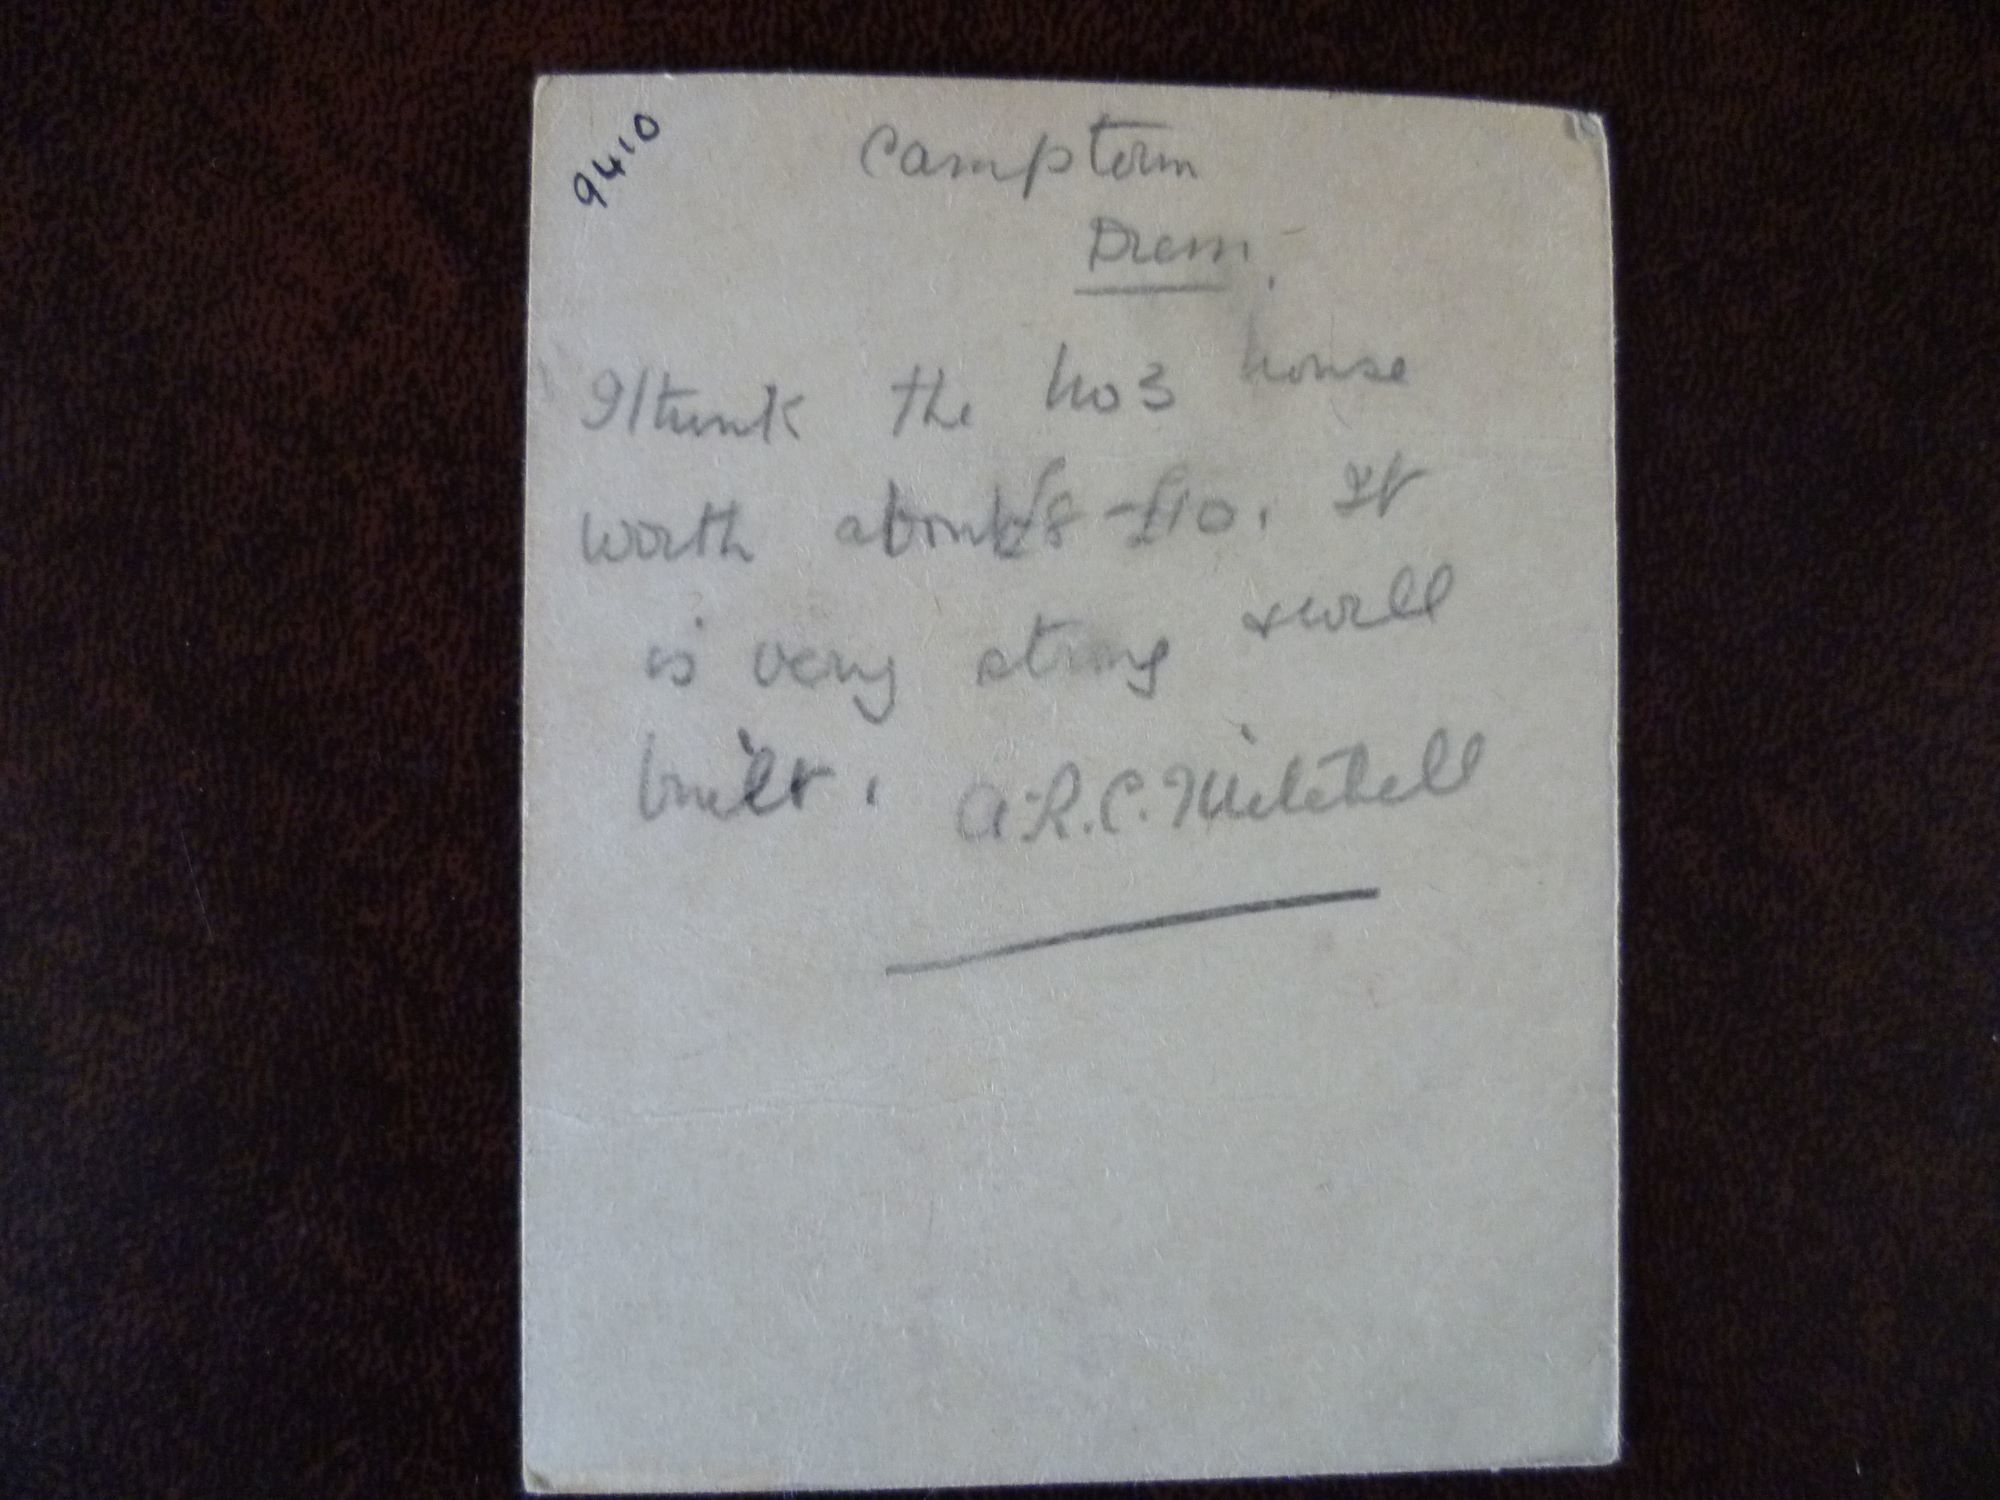 9410
Camptoun
Drem.
I think the No 3 house
worth about £8 - £10. It
is very strong & well
built. A.R.C. Mitchell